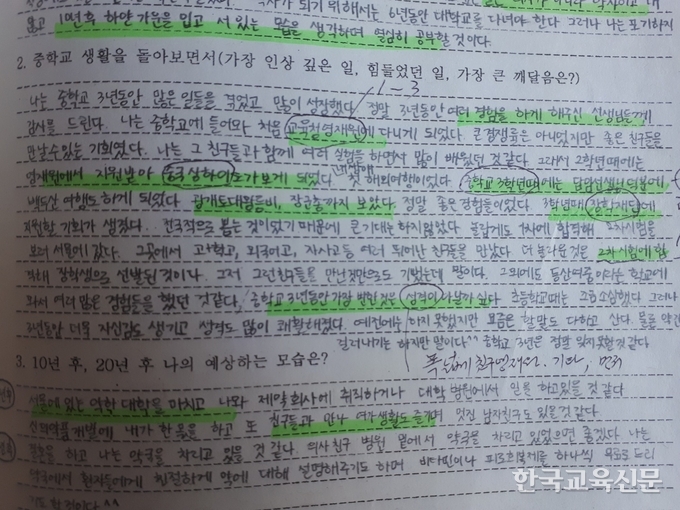 되기 위해서는 6년동안 대학교를 다녀야 한다. 그러나 나는 포기하지
않고 10년후 하얀 가운을 입고 서 있는 모습을 생각하며 열심히 공부할 것이다.
2. 중학교 생활을 돌아보면서(가장 인상 깊은 일, 힘들었던 일, 가장 큰 깨달음은?)
1~3
나는 중학교 3년동안 많은 일들을 겪었고 많이 성장했다. 정말 3년동안 여러 경험을 하게 해주신 선생님들께
감사를 드린다. 나는 중학교에 들어와 처음 교육청영재원에 다니게 되었다. 큰 경쟁률은 아니었지만 좋은 친구들을
만날수있는 기회였다. 나는 그 친구들과 함께 여러 실험을 하면서 많이 배웠던 것같다. 그래서 2학년때에는
영재원에서 지원받아 중국 상하이도 가보게 되었다. 첫 해외여행이었다. 중학교 3학년때에는 담임선생님 덕분에
백두산 여행도 하게 되었다. 광개토대왕릉비, 장군총까지 보았다. 정말 좋은 경험들이었다. 3학년때 장학재단에
지원할 기회가 생겼다. 전국적으로 뽑는 것이었기 때문에 큰 기대는 하지않았다. 놀랍게도 1차에 합격해 2차시험을
보러 서울에 갔다. 그곳에서 과학고, 외국어고, 자사고등 여러 뛰어난 친구들을 만났다. 더 놀라운 것은 2차 시험에 합
격해 장학생으로 선발된 것이다. 그저 그런친구들을 만난것만으로도 기뻤는데 말이다. 그외에도 학교에
와서 여러 많은 경험들을 했던 것같다. 중학교 3년동안 가장 변한것은 성격이 아닐까 싶다. 초등학교때는 소심했다. 그러나
3년동안 더욱 자신감도 생기고 성격도 많이 쾌활해졌다. 예전에는 하지 못했지만 요즘은 할말도 다하고 산다. 물론 약간
걸러내기는 하지만 말이다^^ 중학교 3년은 정말 잊지못할것 같다.
3. 10년 후, 20년 후 나의 예상하는 모습은?
폭넓게 친구
서울에 있는 약학 대학을 마치고 나와 제약회사에 취직하거나 대학 병원에서 일을 하고있을 것 같다.
신의약품개발에 내가 한 몫을 하고 또 친구들과 만나 여가생활도 즐기며 멋진 남자친구도 있을것 같다.
하고 나는 약국을 차리고 있을 것 같다. 의사친구 병원 밑에서 약국을 차리고 있었으면 좋겠다. 나는
약국에서 환자들에게 친절하게 약에 대해 설명해주기도 하며 비타민이나 피로회복제를 하나씩 드리
한국교육신문